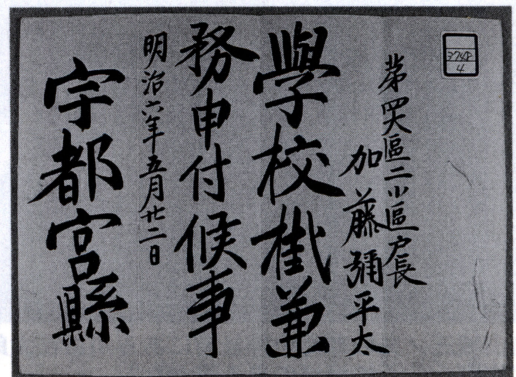 第四大區二小區戸長
加藤彌平太
學校掛兼
務申付候事
明治六年五月廿二日
宇都宮縣
3748
4